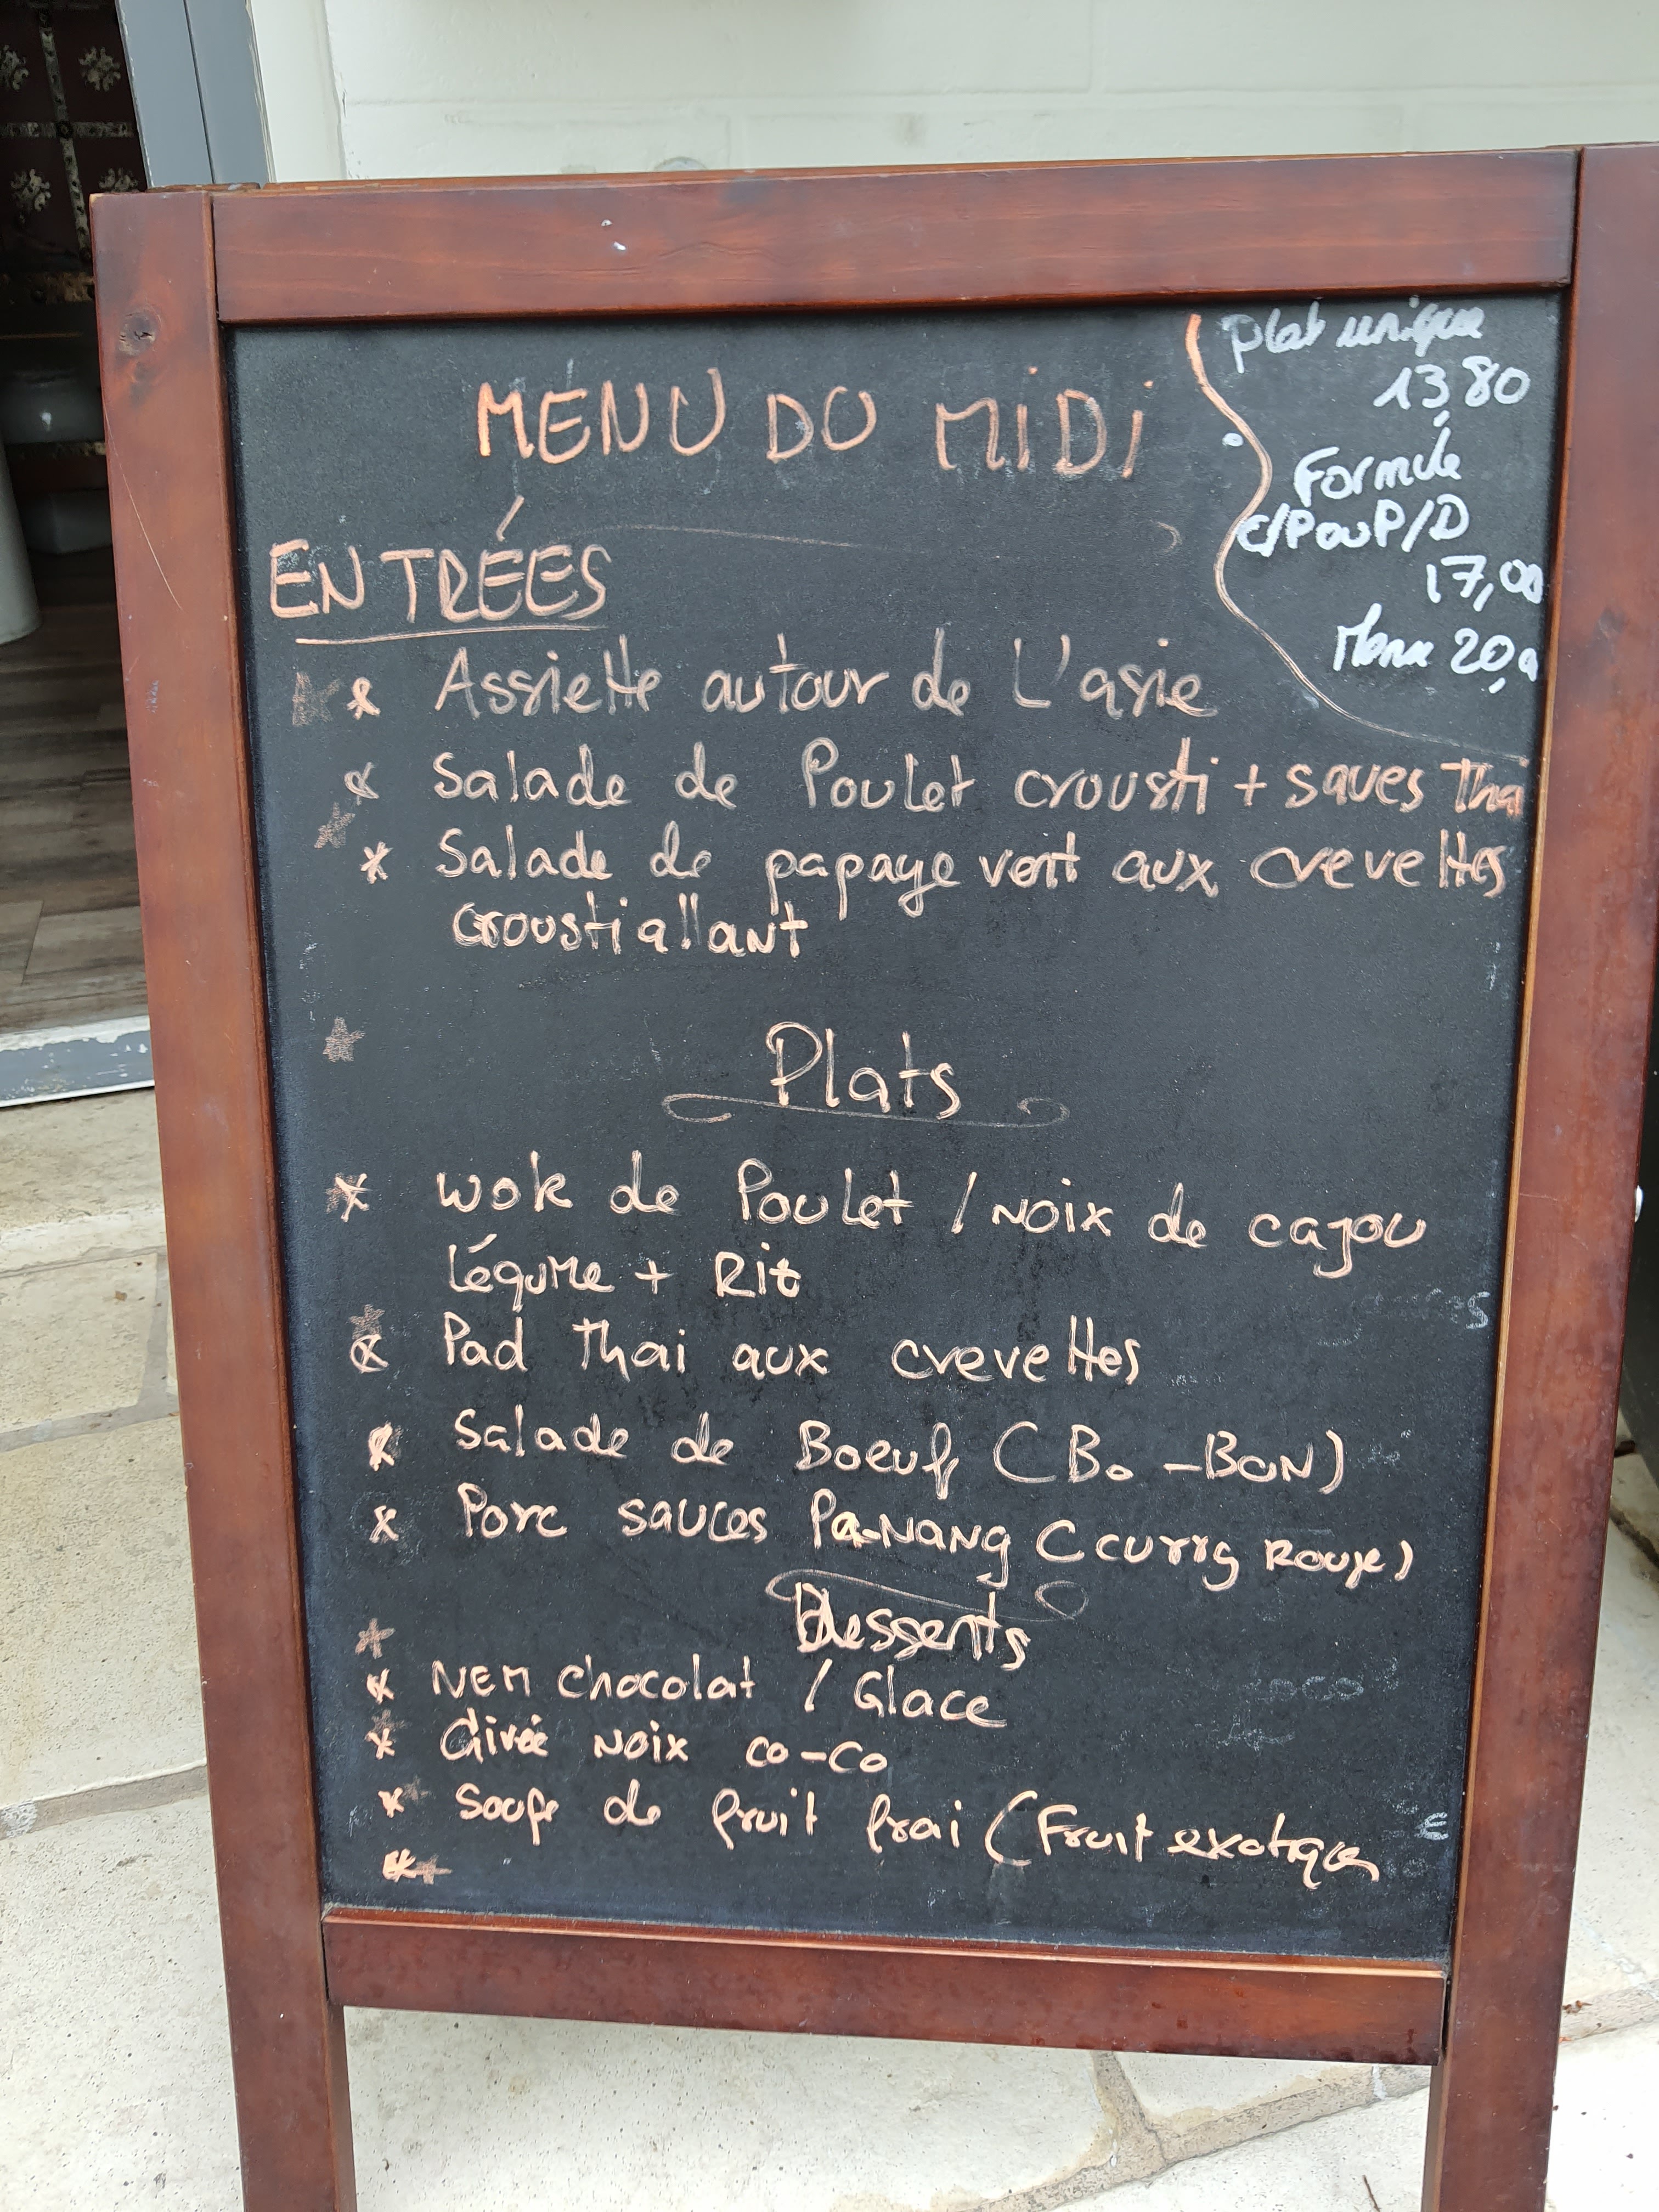 MENU DU MIDI
plat unique
13,80
Formule
E/P ou P/D
17,00
Menu 20,0
ENTRÉES
* Assiette autour de L'asie
* Salade de Poulet crousti + sauces Thai
* Salade de papaye vert aux crevettes
croustiallant
Plats
* wok de Poulet / Noix de cajou
légume + Rit
* Pad Thai aux crevettes
* Salade de Boeuf (Bo-BUN)
* Porc sauces Pa-NANg (curry Rouge)
Desserts
* NEM chocolat / Glace
* Givée Noix co-co
* Soupe de fruit frai (Fruit exotique